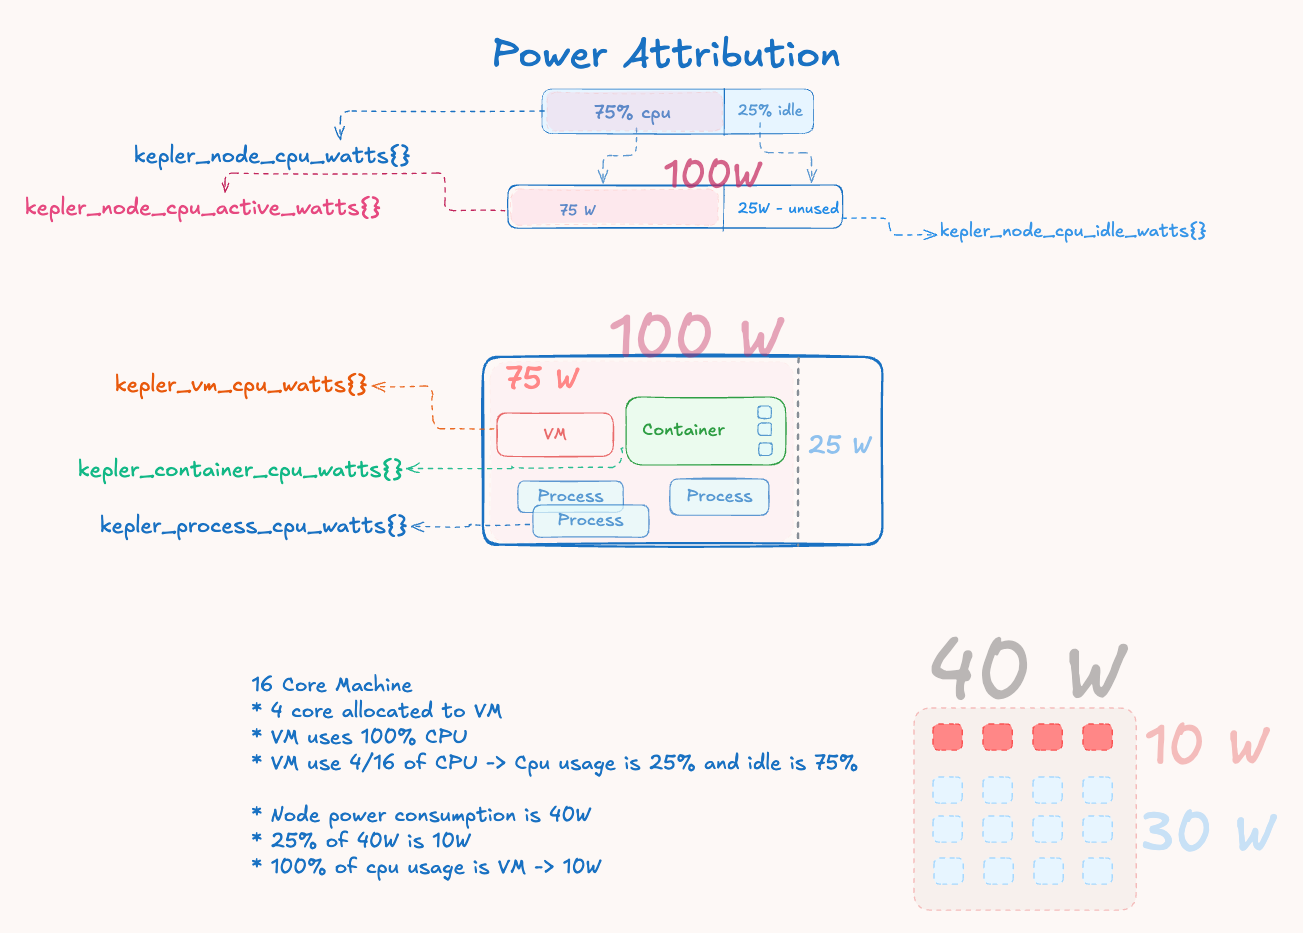 Power Attribution
75% cpu
25% idle
kepler_node_cpu_watts{}
100W
kepler_node_cpu_active_watts{}
75 W
25W - unused
kepler_node_cpu_idle_watts{}
100 W
75 W
kepler_vm_cpu_watts{}
VM
Container
25 W
kepler_container_cpu_watts{}
Process
Process
Process
kepler_process_cpu_watts{}
40 W
16 Core Machine
* 4 core allocated to VM
* VM uses 100% CPU
* VM use 4/16 of CPU -> Cpu usage is 25% and idle is 75%
10 W
* Node power consumption is 40W
* 25% of 40W is 10W
* 100% of cpu usage is VM -> 10W
30 W